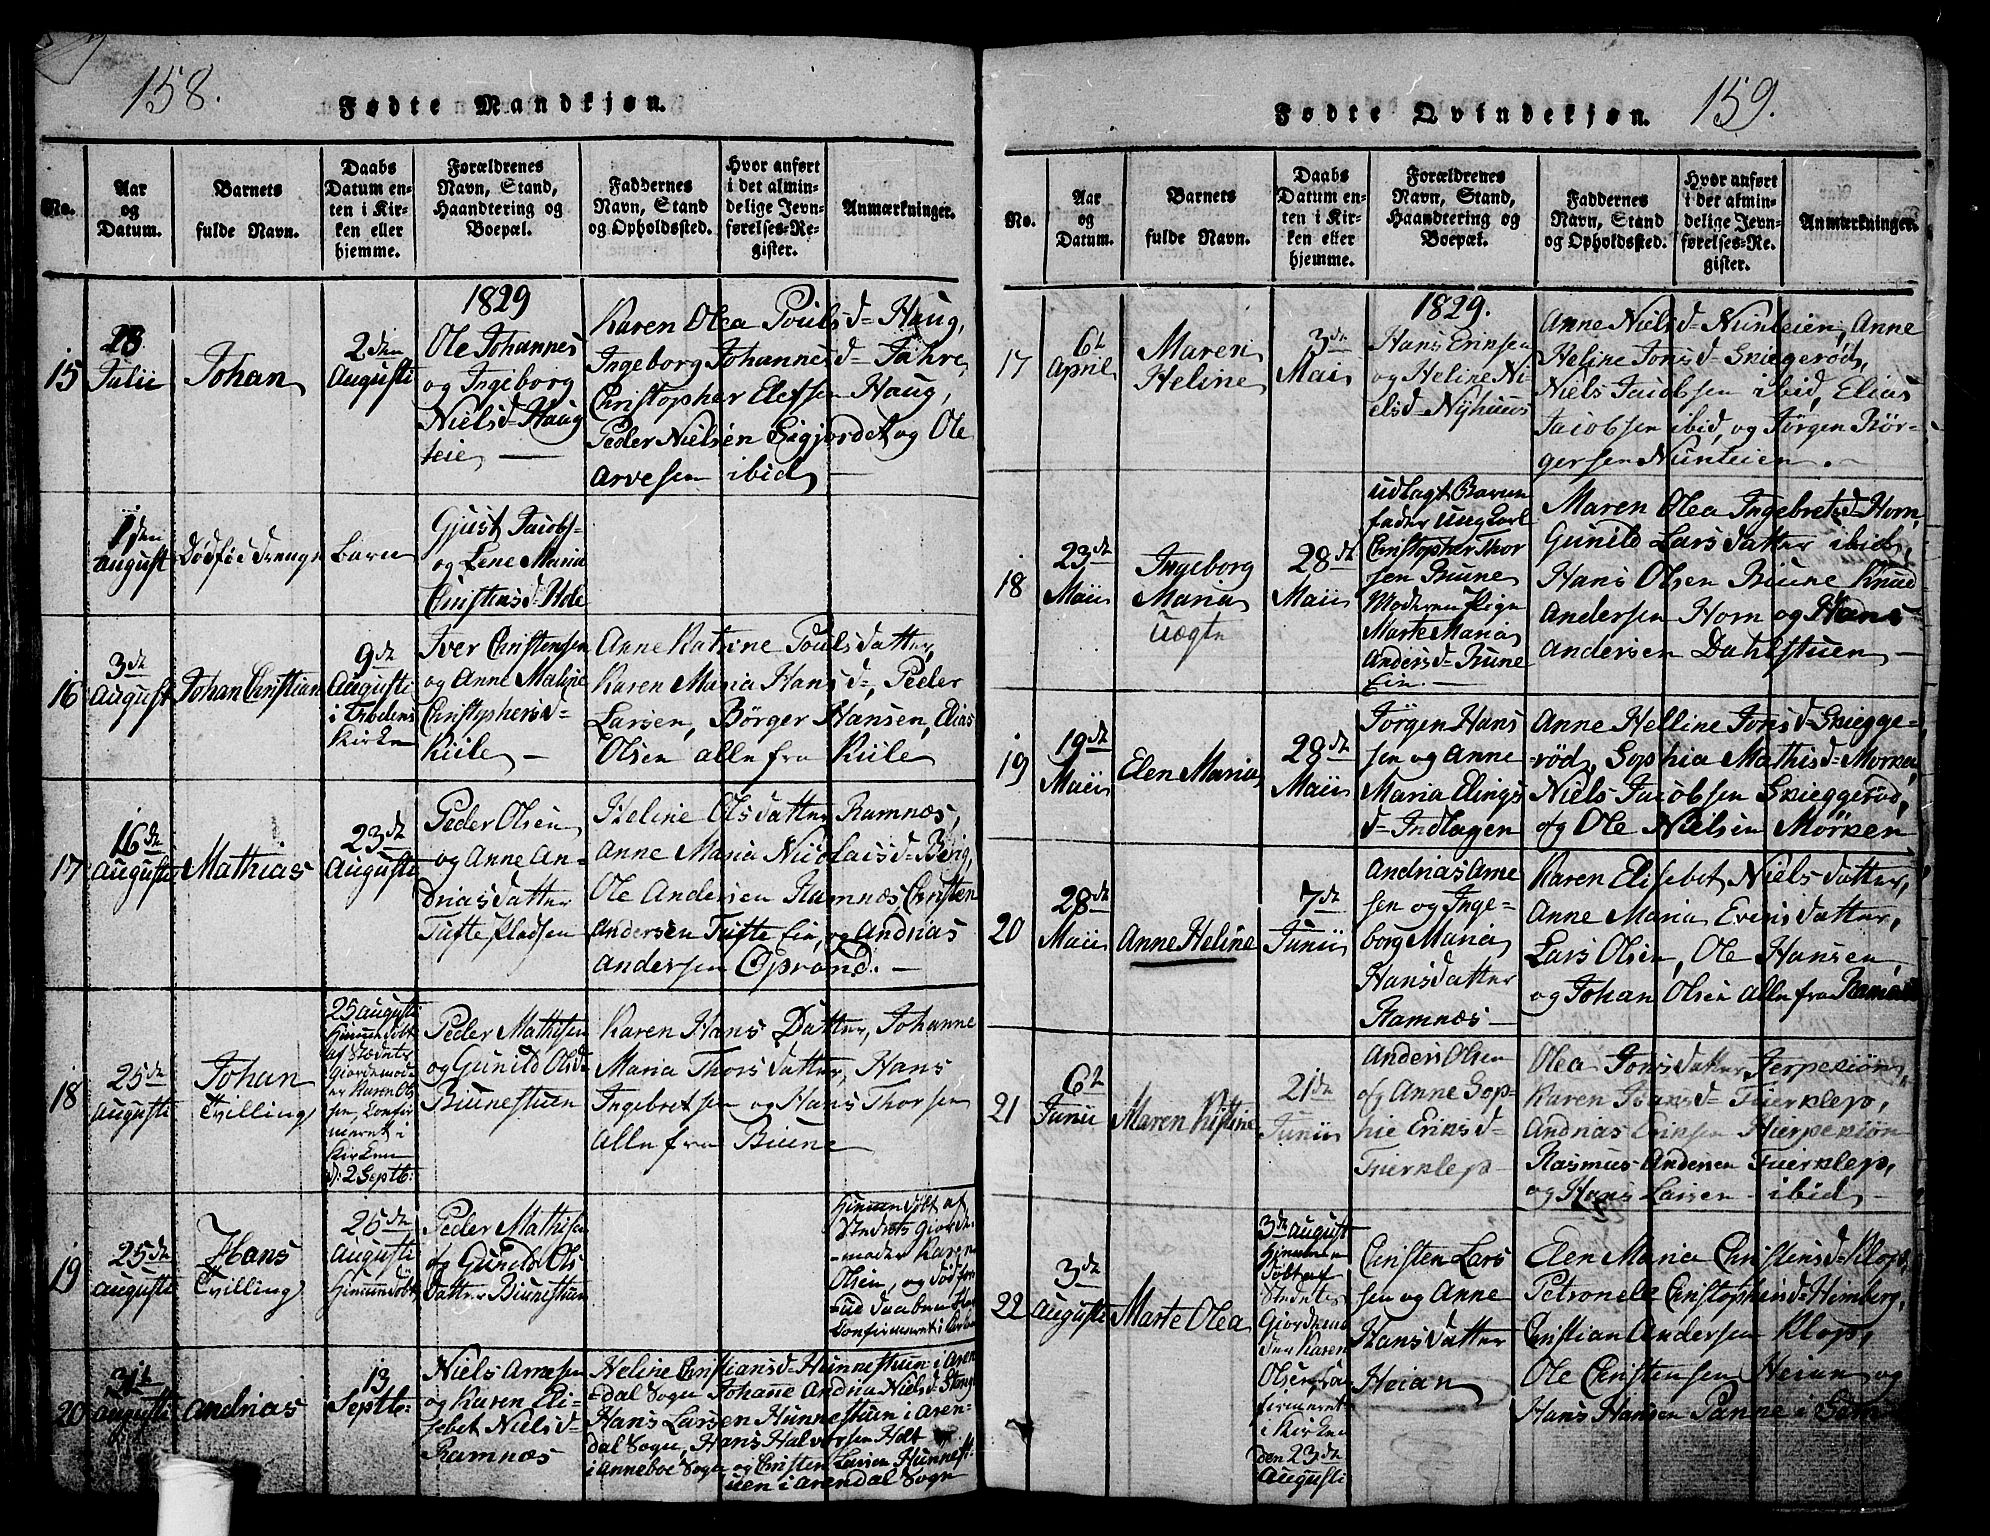 158.
Fødte Mandkjøn.
No.
Aar
og
Datum.
Barnets
fulde Navn.
Daabs
Datum en-
ten i Kir-
ken eller
hjemme.
Forældrenes
Navn, Stand,
Haandtering og
Boepæl.
Faddernes
Navn, Stand
og Opholdssted.
Hvor anført
i det almin-
delige Jevn-
førelses-Re-
gister.
Anmærkninger.
1829
15
28
Julii
Johan
2den
Augusti
Ole Johannes
og Ingeborg
Niels d= Haug
teie
Karen Olea Pouls d= Haug,
Ingeborg Johannes d= Jahre
Christopher Elefsen Haug,
Peder Nielsen Gigjordet og Ole
Arvesen ibid
1den
August
Dødfød drenge
Barn
Gjust Jacobs-
og Lene Maria
Christens d=
16
3de
August
Johan Christian
9de
Augusti
i
Kirken
Iver Christensen
og Anne Maline
Christophers d=
Kiile
Anne Katrine Pouls datter,
Karen Maria Hans d=, Peder
Larsen, Børger Hansen, Elias
Olsen alle fra Kiile
17
16de
Augusti
Mathias
23de
Augusti
Peder Olsen
og Anne An-
drias datter
Tufte Pladsen
Heline Ols datter Ramnæs,
Anne Maria Nicolais d= Berg,
Ole Andersen Ramnæs, Christen
Andersen Tufte Eie, og Andrias
Andersen Oprand.
18
25de
Augusti
Johan
Tvilling
25 Augusti
Hiemmedøbt
af Stædets
Giordemod
er Karen Ol
sen, Confir
meret i
Kirken
d: 2 Septb:
Peder Mathisen
og Gunild Ols d
Biunestuen
Karen Hans Datter, Johanne
Maria Thors datter, Hans
Ingebretsen og Hans Thorsen
Alle fra Biune
19
25de
Augusti
Hans
Tvilling
25de
Augusti
Hiemmedøbt
Peder Mathisen
og Gunild Ols
datter Biunestuen
Hiemmedøbt af
Stedets Giorde-
moder Karen
Olsen, og død
20
31te
Augusti
Andrias
13
Septb:
Niels Arnesen
og Karen Eli-
sebet Niels d=
Ramnæs
Heline Christians d= Hunnestuen i Aren
dal Sogn Johane Andria Niels d=
Hans Larsen Hunnestuen i Aren-
dal Sogn, Hans Halvorsen Holt
i Anneboe Sogn og Christen Larsen Hunnest
uen i Arendal Sogn
159.
Fødte Qvindekjøn.
No.
Aar
og
Datum.
Barnets
fulde Navn.
Daabs
Datum en-
ten i Kir-
ken eller
hjemme.
Forældrenes
Navn, Stand,
Haandtering og
Boepæl.
Faddernes
Navn, Stand
og Opholdssted.
Hvor anført
i det almin-
delige Jevn-
førelses-Re-
gister.
Anmærkninger.
1829.
17
6te
April
Maren
Heline
3de
Mai
Hans Eriksen
og Heline Ni-
els d= Nyhuus
Anne Niels d= Nunteien, Anne
Heline Jons d= Skieggerød,
Niels Jacobsen ibid, Elias
Jacobsen ibid, og Jørgen Bør-
gersen Nunteien.
18
23de
Maii
Ingeborg
Maria
uægte
28de
Maii
Udlagt Barne
fader Ung karl
Christopher Thor
sen Biune
Moderen Pige
Marte Maria
Anders d= Biune
Eie.
Maren Olea Ingebrets d= Horn,
Gunild Lars datter ibid,
Hans Olsen Biune Knud
Andersen Horn og Hans
Andersen Dahlstuen
19
19de
Maii
Elen Maria
28de
Maii
Jørgen Hans
sen og Anne
Maria Elings
d= Indlagen
Anne Helline Jons d= Skiegge-
rød, Sophia Mathis d= Morken,
Niels Jacobsen Skieggerød,
og Ole Nielsen Mörken
20
28de
Maii
Anne Heline
7de
Junii
Andrias Arne
sen og Inge-
borg Maria
Hansdatter
Ramnæs
Karen Elisebet Niels datter,
Anne Maria Evens datter,
Lars Olsen, Ole Hansen
og Johan Olsen Alle fra Ramnæs
21
6te
Junii
Maren Kistine
21de
Junii
Anders Olsen
og Anne Sop-
hie Eriks d=
Fuerklep
Olea Jons datter
Karen Isaks d= Fuerklep,
Andrias Eriksen
Rasmus Andersen Fuerklep,
og Hans Larsen ibid
22
3de
Augusti
Marte Olea
3de August
Hiemme
døbt af
Stedets
Giordemo
der Karen
Olsen
firmeret
i Kirken
den 23de
Augusti
Christen Lars
sen og Anne
Hansdatter
Heian
Elen Maria Christens d= Klop,
Petronele Christophers d= Heimberg,
Christian Andersen Klop,
Ole Christensen Heian og
Hans Hansen Panne i